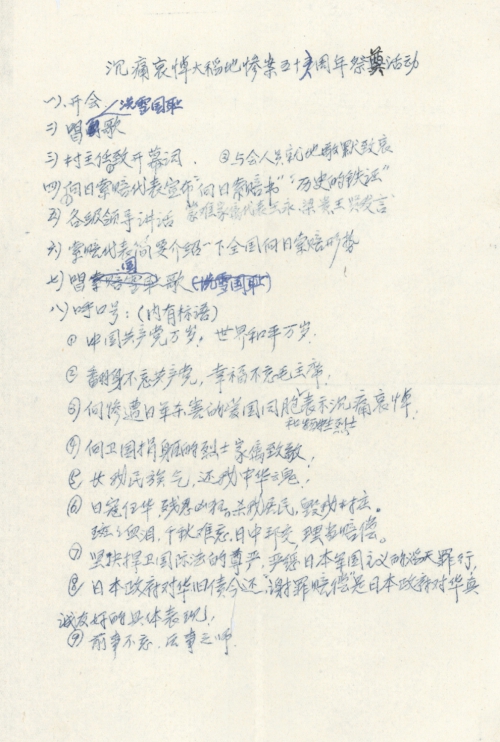 沉痛哀悼大稻地惨案五十周年祭奠活动
一)、开会.
二) 唱国歌 洗雪国耻
三) 村主任致开幕词. ③与会人员就地默哀致哀
四) 向日索赔代表宣布“向日索赔书”“历史的铁证”
五) 各级领导讲话
六) 索赔代表简要介绍一下全国向日索赔形势
七) 唱国歌 (洗雪国耻)
八) 呼口号: (内有标语)
① 中国共产党万岁, 世界和平万岁.
② 翻身不忘共产党, 幸福不忘毛主席.
③ 向惨遭日军杀害的爱国同胞表示沉痛哀悼.
和牺牲烈士
④ 向卫国捐躯的烈士家属致敬!
⑤ 长我民族气, 还我中华魂!
⑥ 日寇侵华 残忍凶狂, 杀我居民, 毁我村庄。
斑斑血泪, 千秋难忘, 日中邦交, 理当赔偿。
⑦ 坚决捍卫国际法的尊严, 严惩日本军国主义的滔天罪行,
⑧ 日本政府对华旧债今还, “谢罪赔偿”是日本政府对华真
诚友好的具体表现!
⑨ 前事不忘. 后事之师.